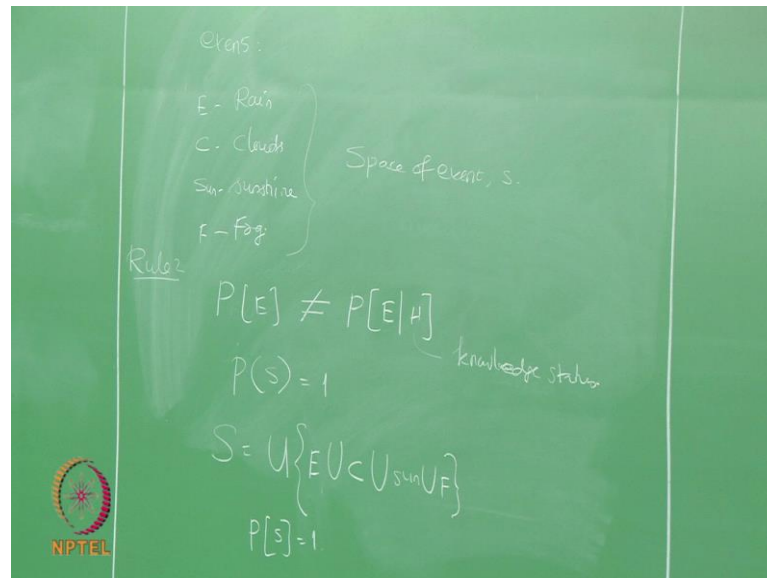 events:
E - Rain
C - Clouds
Sun - Sunshine
F - Fog
Space of event, S.
Rule 2
P[E] ≠ P[E|H]
knowledge status
P(S) = 1
S = U{E U C U sun U F}
P[S] = 1
NPTEL